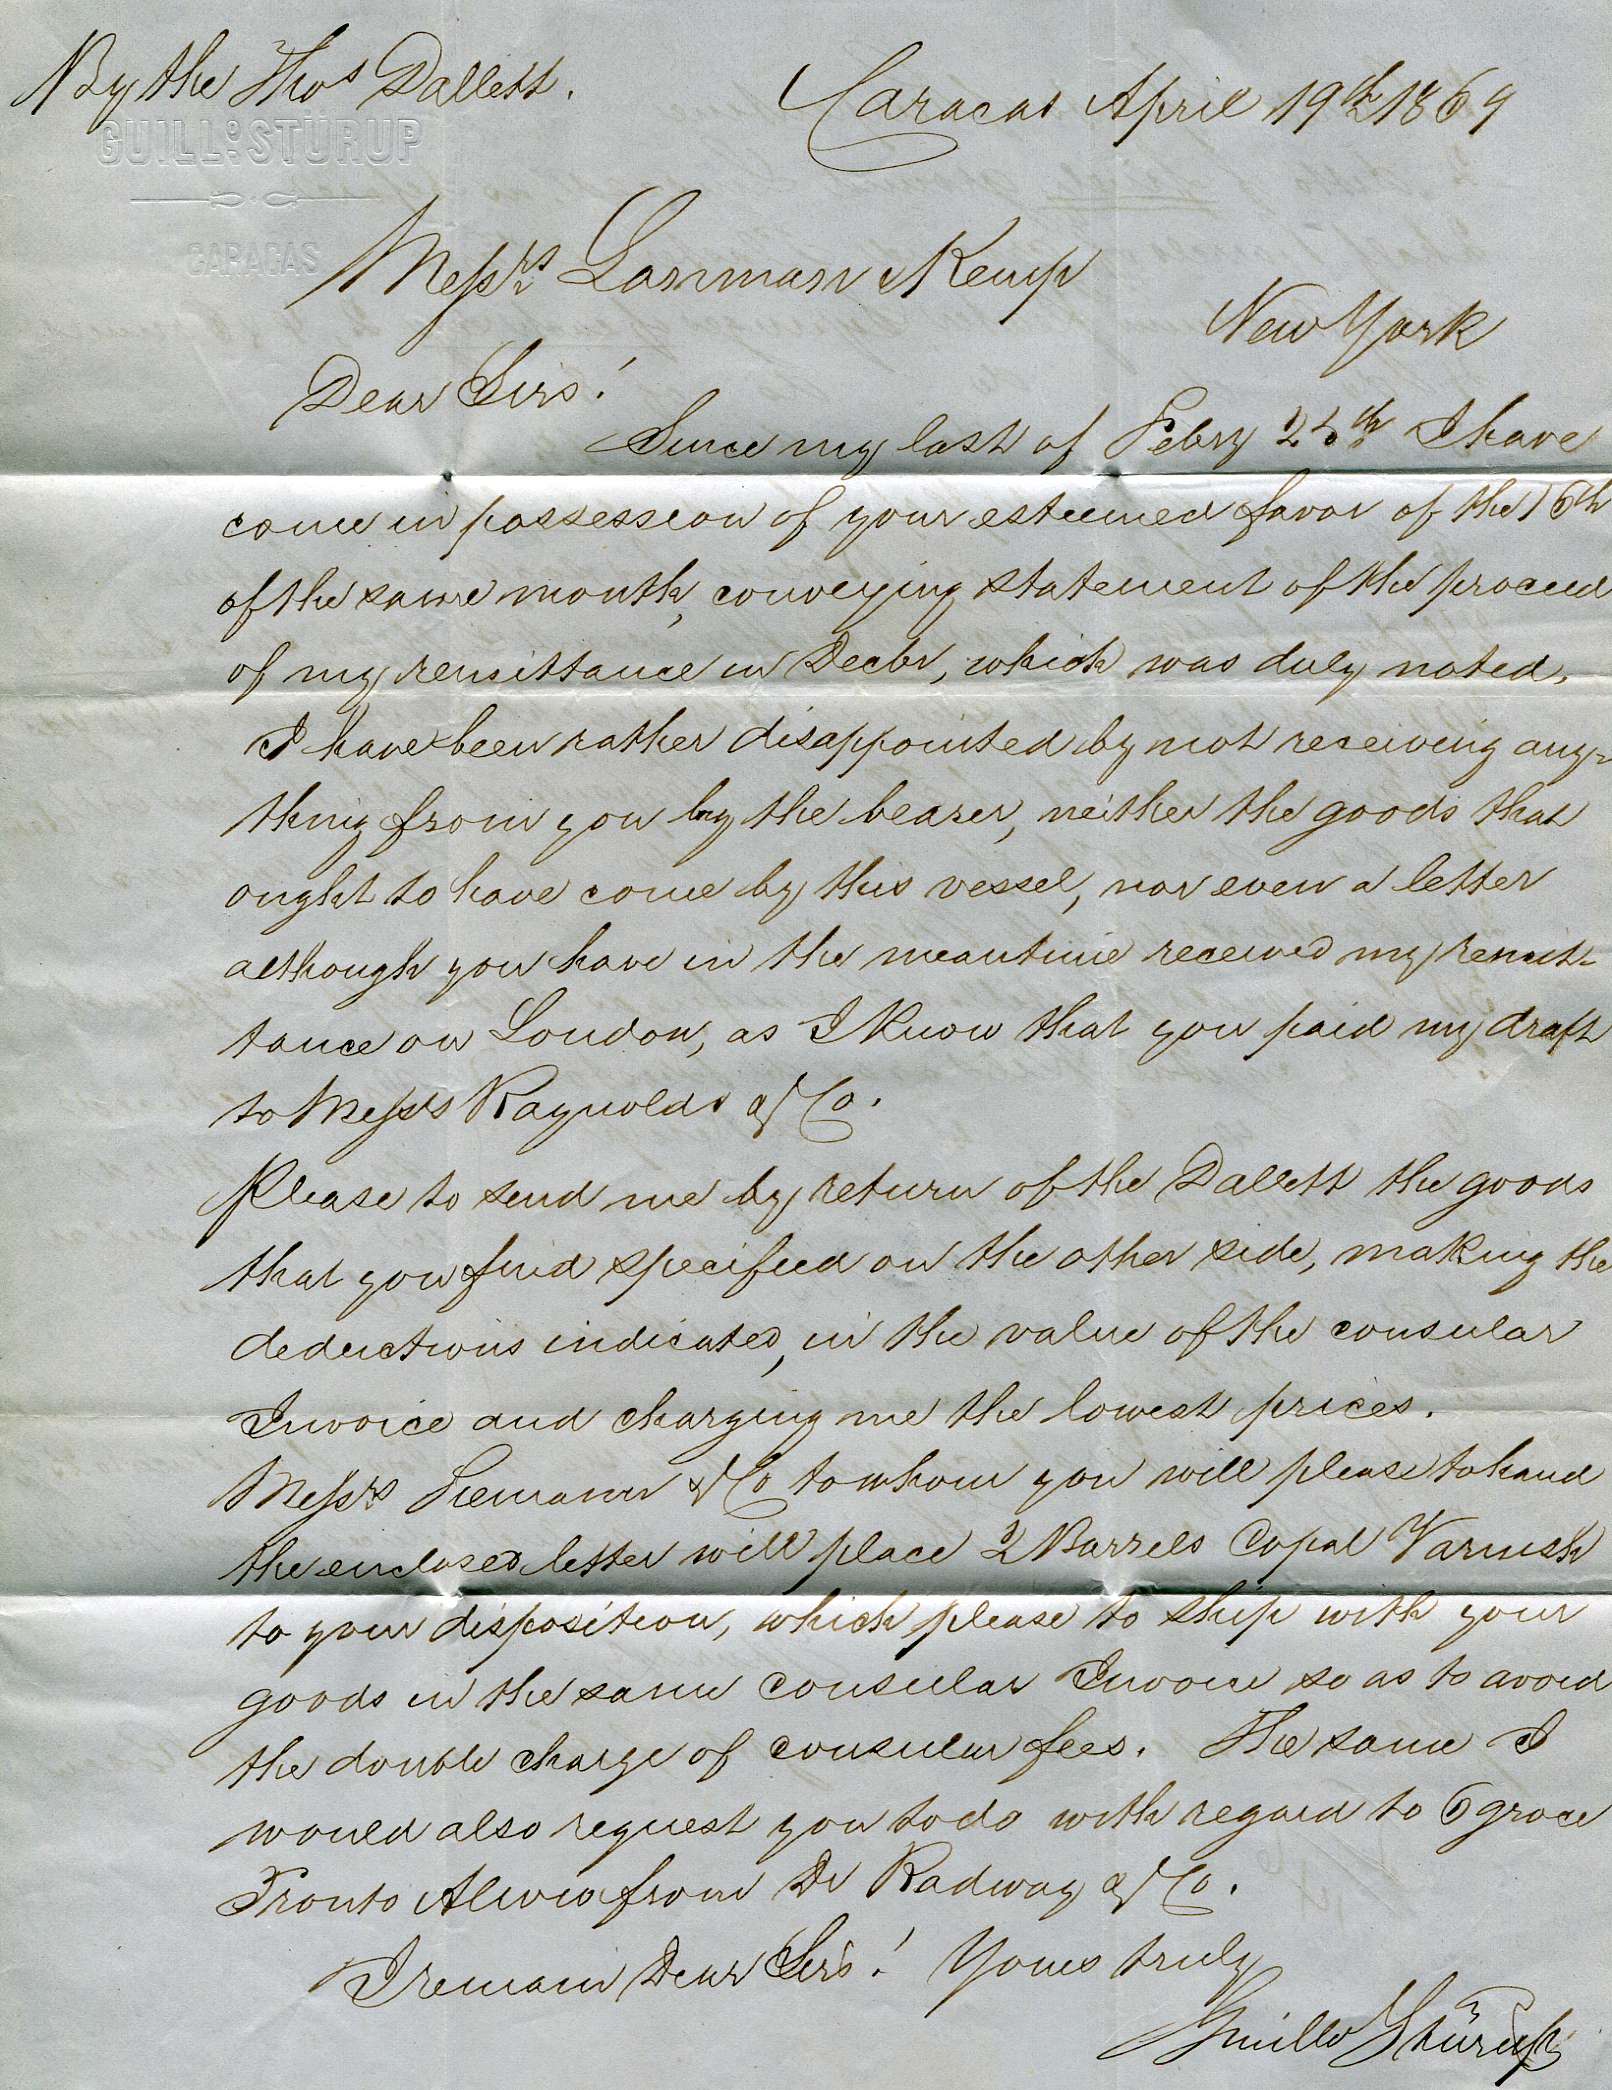 By the Thos Dallett.
Caracas April 19th 1869
GUILLO. STÜRUP
CARACAS
Messrs Lanman & Kemp
New York
Dear Sirs!
Since my last of Febry 25th I have
come in possession of your esteemed favor of the 16th
of the same month, conveying statement of the proceed
of my remittance in Decbr, which was duly noted.
I have been rather disappointed by not receiving any-
thing from you by the bearer, neither the goods that
ought to have come by this vessel, nor even a letter
although you have in the meantime received my remit-
tance on London, as I know that you paid my draft
to Messrs Raynolds & Co.
Please to send me by return of the Dallett the goods
that you find specified on the other side, making the
deductions indicated, in the value of the consular
Invoice and charging me the lowest prices.
Messrs & Co to whom you will please to hand
the enclosed letter will place 2 Barrels Copal Varnish
to your disposition, which please to ship with your
goods in the same consular Invoice so as to avoid
the double charge of consular fees. The same I
would also request you to do with regard to 6 groce
Pronto Alivio from Dr Radway & Co.
I remain Dear Sirs! Yours truly
Guillo Stürup